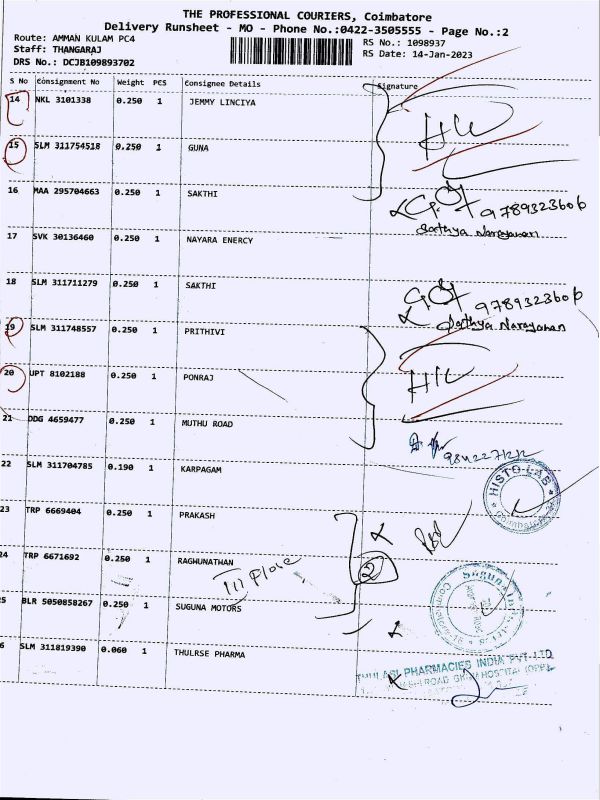 THE PROFESSIONAL COURIERS, Coimbatore
Delivery Runsheet - MO - Phone No.:0422-3505555 - Page No.:2
Route: AMMAN KULAM PC4
RS No.: 1098937
Staff: THANGARAJ
RS Date: 14-Jan-2023
DRS No.: DCJB109893702
S No Consignment No Weight PCS Consignee Details Signature
14 NKL 3101338 0.250 1 JEMMY LINCIYA
15 SLM 311754518 0.250 1 GUNA
16 MAA 295704663 0.250 1 SAKTHI
9789323606
Sathya Narayanan
17 SVK 30136460 0.250 1 NAYARA ENERCY
18 SLM 311711279 0.250 1 SAKTHI
9789323606
Sathya Narayanan
19 SLM 311748557 0.250 1 PRITHIVI
20 UPT 8102188 0.250 1 PONRAJ
21 DDG 4659477 0.250 1 MUTHU ROAD
22 SLM 311704785 0.190 1 KARPAGAM
HISTO-LAB
23 TRP 6669404 0.250 1 PRAKASH
24 TRP 6671692 0.250 1 RAGHUNATHAN
III Place
2
5 BLR 5050858267 0.250 1 SUGUNA MOTORS
6 SLM 311819390 0.060 1 THULRSE PHARMA
THULASI PHARMACIES INDIA PVT-LTD